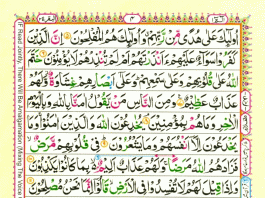 اُولٰٓئِكَ عَلٰى هُدًى مِّنْ رَّبِّهِمْ وَاُولٰٓئِكَ هُمُ الْمُفْلِحُوْنَ اِنَّ الَّذِيْنَ
كَفَرُوْا سَوَآءٌ عَلَيْهِمْ ءَاَنْذَرْتَهُمْ اَمْ لَمْ تُنْذِرْهُمْ لَا يُؤْمِنُوْنَ خَتَمَ
اللّٰهُ عَلٰى قُلُوْبِهِمْ وَعَلٰى سَمْعِهِمْ وَعَلٰٓى اَبْصَارِهِمْ غِشَاوَةٌ وَّلَهُمْ
عَذَابٌ عَظِيْمٌ وَمِنَ النَّاسِ مَنْ يَّقُوْلُ اٰمَنَّا بِاللّٰهِ وَبِالْيَوْمِ
الْاٰخِرِ وَمَا هُمْ بِمُؤْمِنِيْنَ يُخٰدِعُوْنَ اللّٰهَ وَالَّذِيْنَ اٰمَنُوْا وَمَا
يَخْدَعُوْنَ اِلَّآ اَنْفُسَهُمْ وَمَا يَشْعُرُوْنَ فِيْ قُلُوْبِهِمْ مَّرَضٌ
فَزَادَهُمُ اللّٰهُ مَرَضًا وَلَهُمْ عَذَابٌ اَلِيْمٌ بِمَا كَانُوْا يَكْذِبُوْنَ
وَاِذَا قِيْلَ لَهُمْ لَا تُفْسِدُوْا فِى الْاَرْضِ قَالُوْٓا اِنَّمَا نَحْنُ مُصْلِحُوْنَ
If Read Jointly, There Will Be Amalgamation (Mixing The Voice